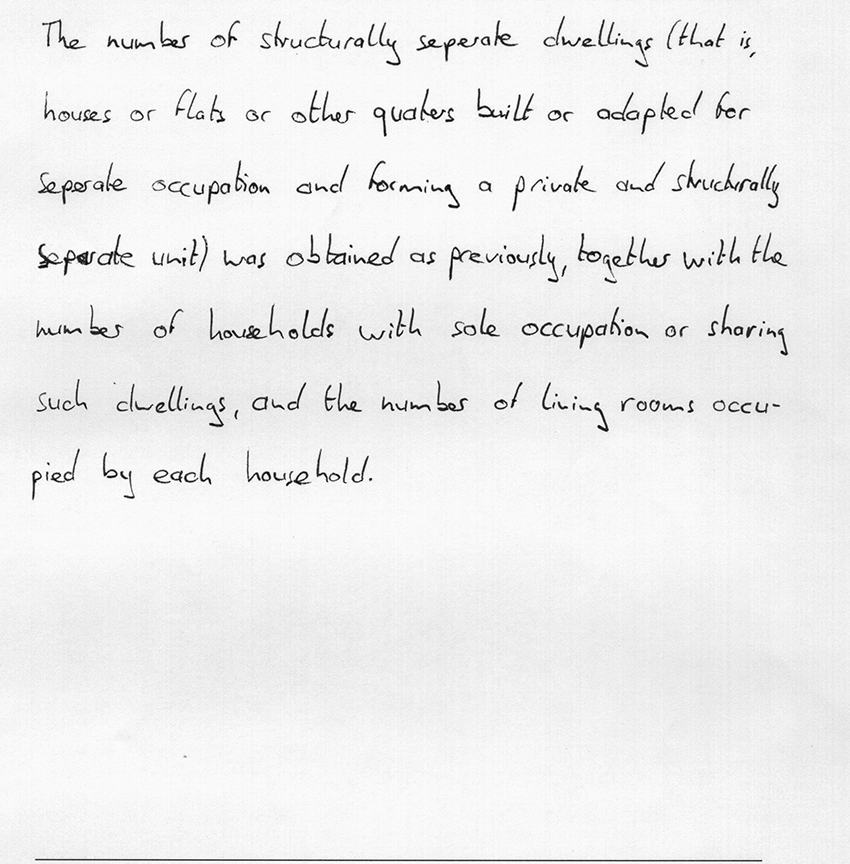 The number of structurally seperate dwellings (that is,
houses or flats or other quaters built or adapted for
seperate occupation and forming a private and structurally
separate unit) was obtained as previously, together with the
number of households with sole occupation or sharing
such dwellings, and the number of living rooms occu-
pied by each household.